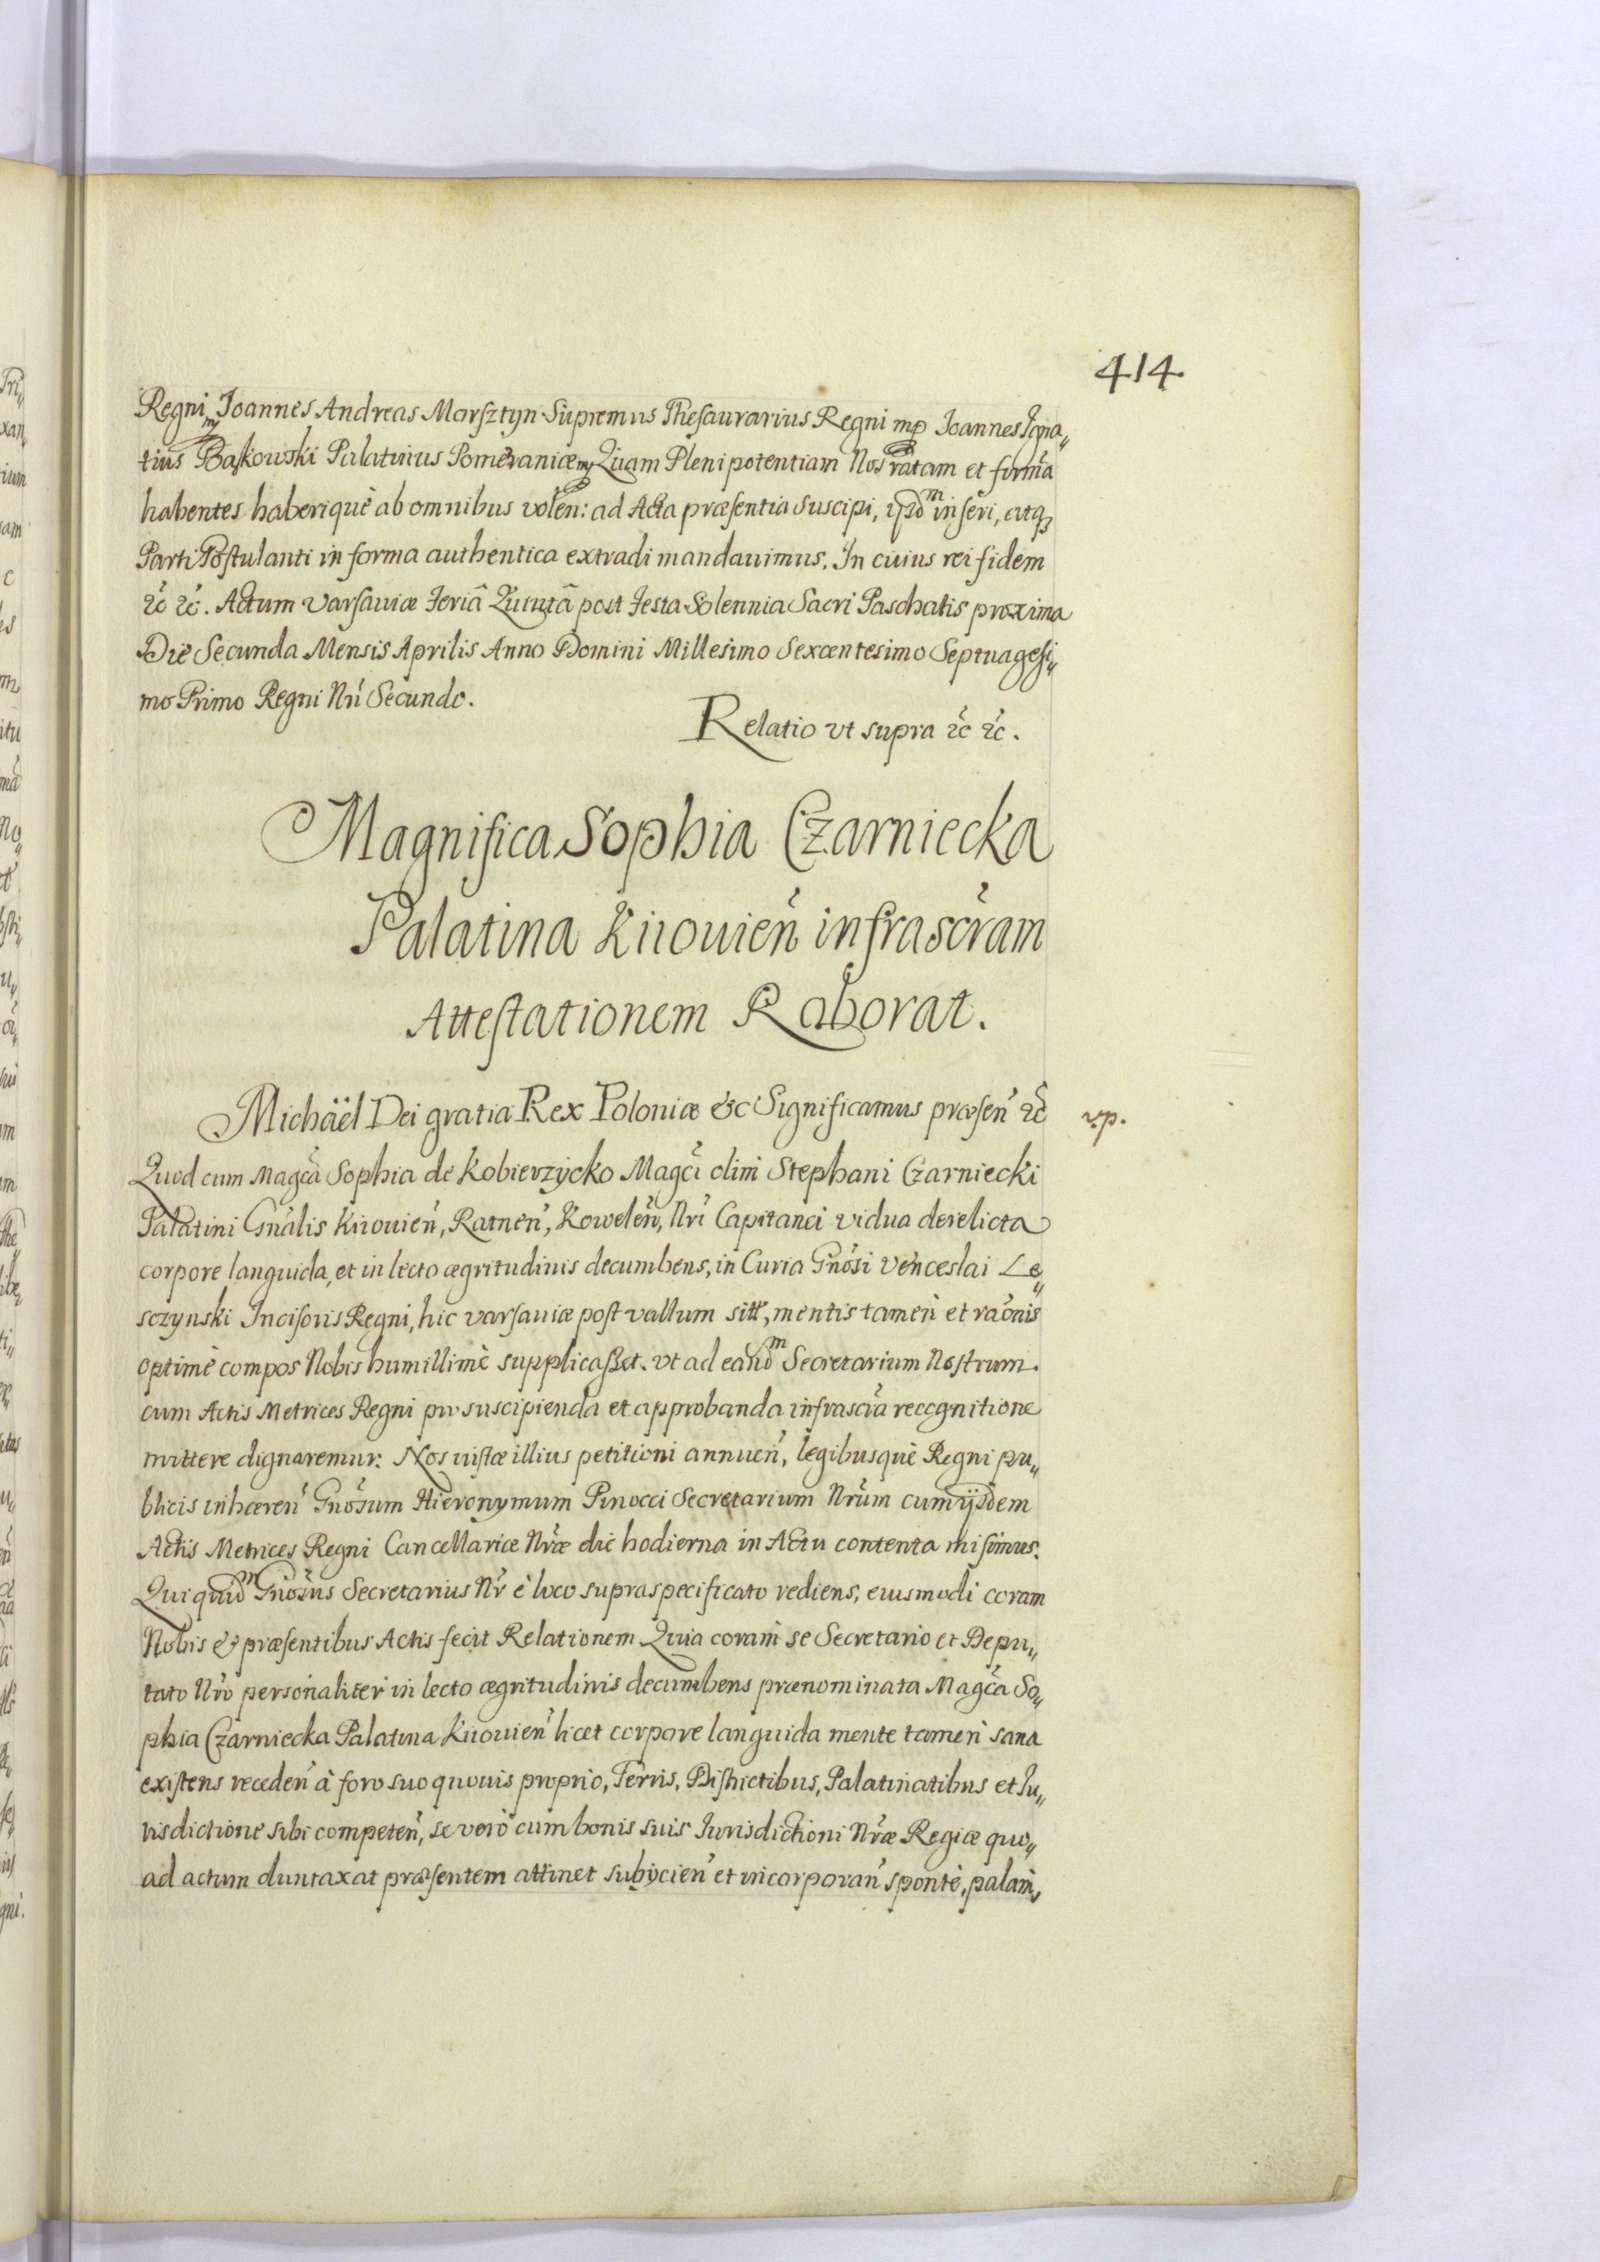 414
Regni mp Joannes Andreas Morsztyn Supremus Thesaurarius Regni mp Joannes Igna„
tius Bąkowski Palatinus Pomeraniæ mp Quam Plenipotentiam Nos ratam et firmã
habentes haberiquè ab omnibus volen: ad Acta præsentia suscipi, ijsdm inseri, atqꝫ
Parti Postulanti in forma authentica extradi mandauimus. In cuius rei fidem
ꝛc̃ ꝛc̃. Actum Varsauiæ Feriâ Quintâ post Festa Solennia Sacri Paschatis proxima
Die Secunda Mensis Aprilis Anno Domini Millesimo Sexcentesimo Septuagesi„
mo Primo Regni Nri̇̃ Secundo.
Relatio vt supra ꝛc̃ ꝛc̃.
Magnifica Sophia Czarniecka
Palatina Kiiouien̉ infrascr̃am
Attestationem Roborat.
Michäel Dei gratia Rex Poloniæ &c Significamus præsen̉ ꝛc̃
v.p.
Quod cum Magc̃a Sophia de Kobierzycko Magc̃i olim Stephani Czarniecki
Palatini Gnãlis Kiiouien̉, Ratnen̉, Kowelen̉, Nrĩ Capitanei vidua derelicta
corpore languida, et in lecto ægritudinis decumbens, in Curia Gnõsi Venceslai Le„
sczynski Incisoris Regni, hic Varsauiæ post vallum sitt, mentis tamen et raõnis
optimè compos Nobis humillimè supplicasset. vt ad eandm Secretarium Nostrum.
cum Actis Metrices Regni pro suscipienda et approbanda infrascr̃a recognitione
mittere dignaremur. Nos iustæ illius petitioni annuen̉, legibusquè Regni pu„
blicis inhæren̉ Gnõsum Hieronymum Pinocci Secretarium Nrũm cum ijsdem
Actis Metrices Regni Cancellariæ Nrãe die hodierna in Actu contenta misimus.
Qui quidm Gnõsus Secretarius Nr̃ è loco supraspecificato rediens, eiusmodi coram
Nobis & præsentibus Actis fecit Relationem Quia coram se Secretario et Depu„
tato Nrõ personaliter in lecto ægritudinis decumbens prænominata Magc̃a So„
phia Czarniecka Palatina Kiiouien̉ licet corpore languida mente tamen sana
existens receden̉ à foro suo quouis proprio, Terris, Districtibus, Palatinatibus et Iu„
risdictione sibi competen̉, se verò cum bonis suis Iurisdictioni Nrãe Regiæ quo„
ad actum duntaxat præsentem attinet subijcien̉ et incorporan̉ spontè, palam,